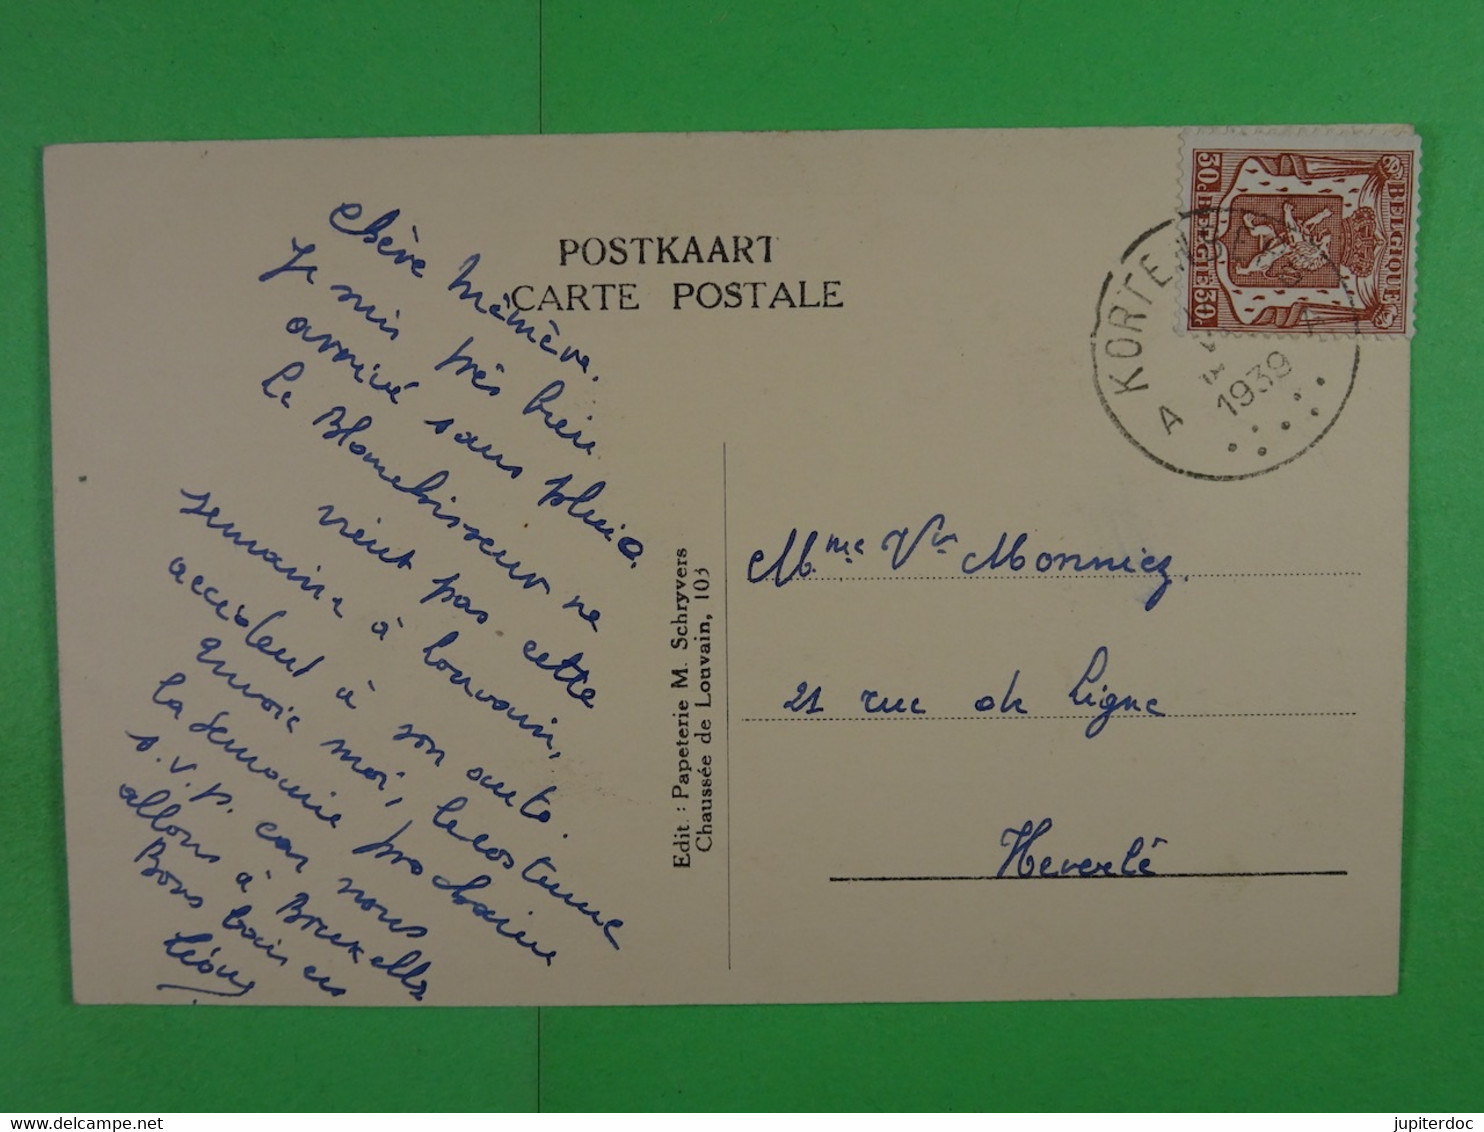 POSTKAART
CARTE POSTALE
Chère Mémère.
Je suis très bien
arrivé sans pluie.
Le Blanchisseur ne
vient pas cette
semaine à Louvain,
accident à son auto.
envoie moi, le costume
la semaine prochaine
s.v.p. car nous
allons à Bruxelles
Bons baisers
Léon
Edit. : Papeterie M. Schryvers
Chaussée de Louvain, 103
BELGIQUE
30c BELGIE 30c
KORTENBERG
1939
A
Mme Vve Monniez.
21 rue de Ligne
Heverlé
jupiterdoc